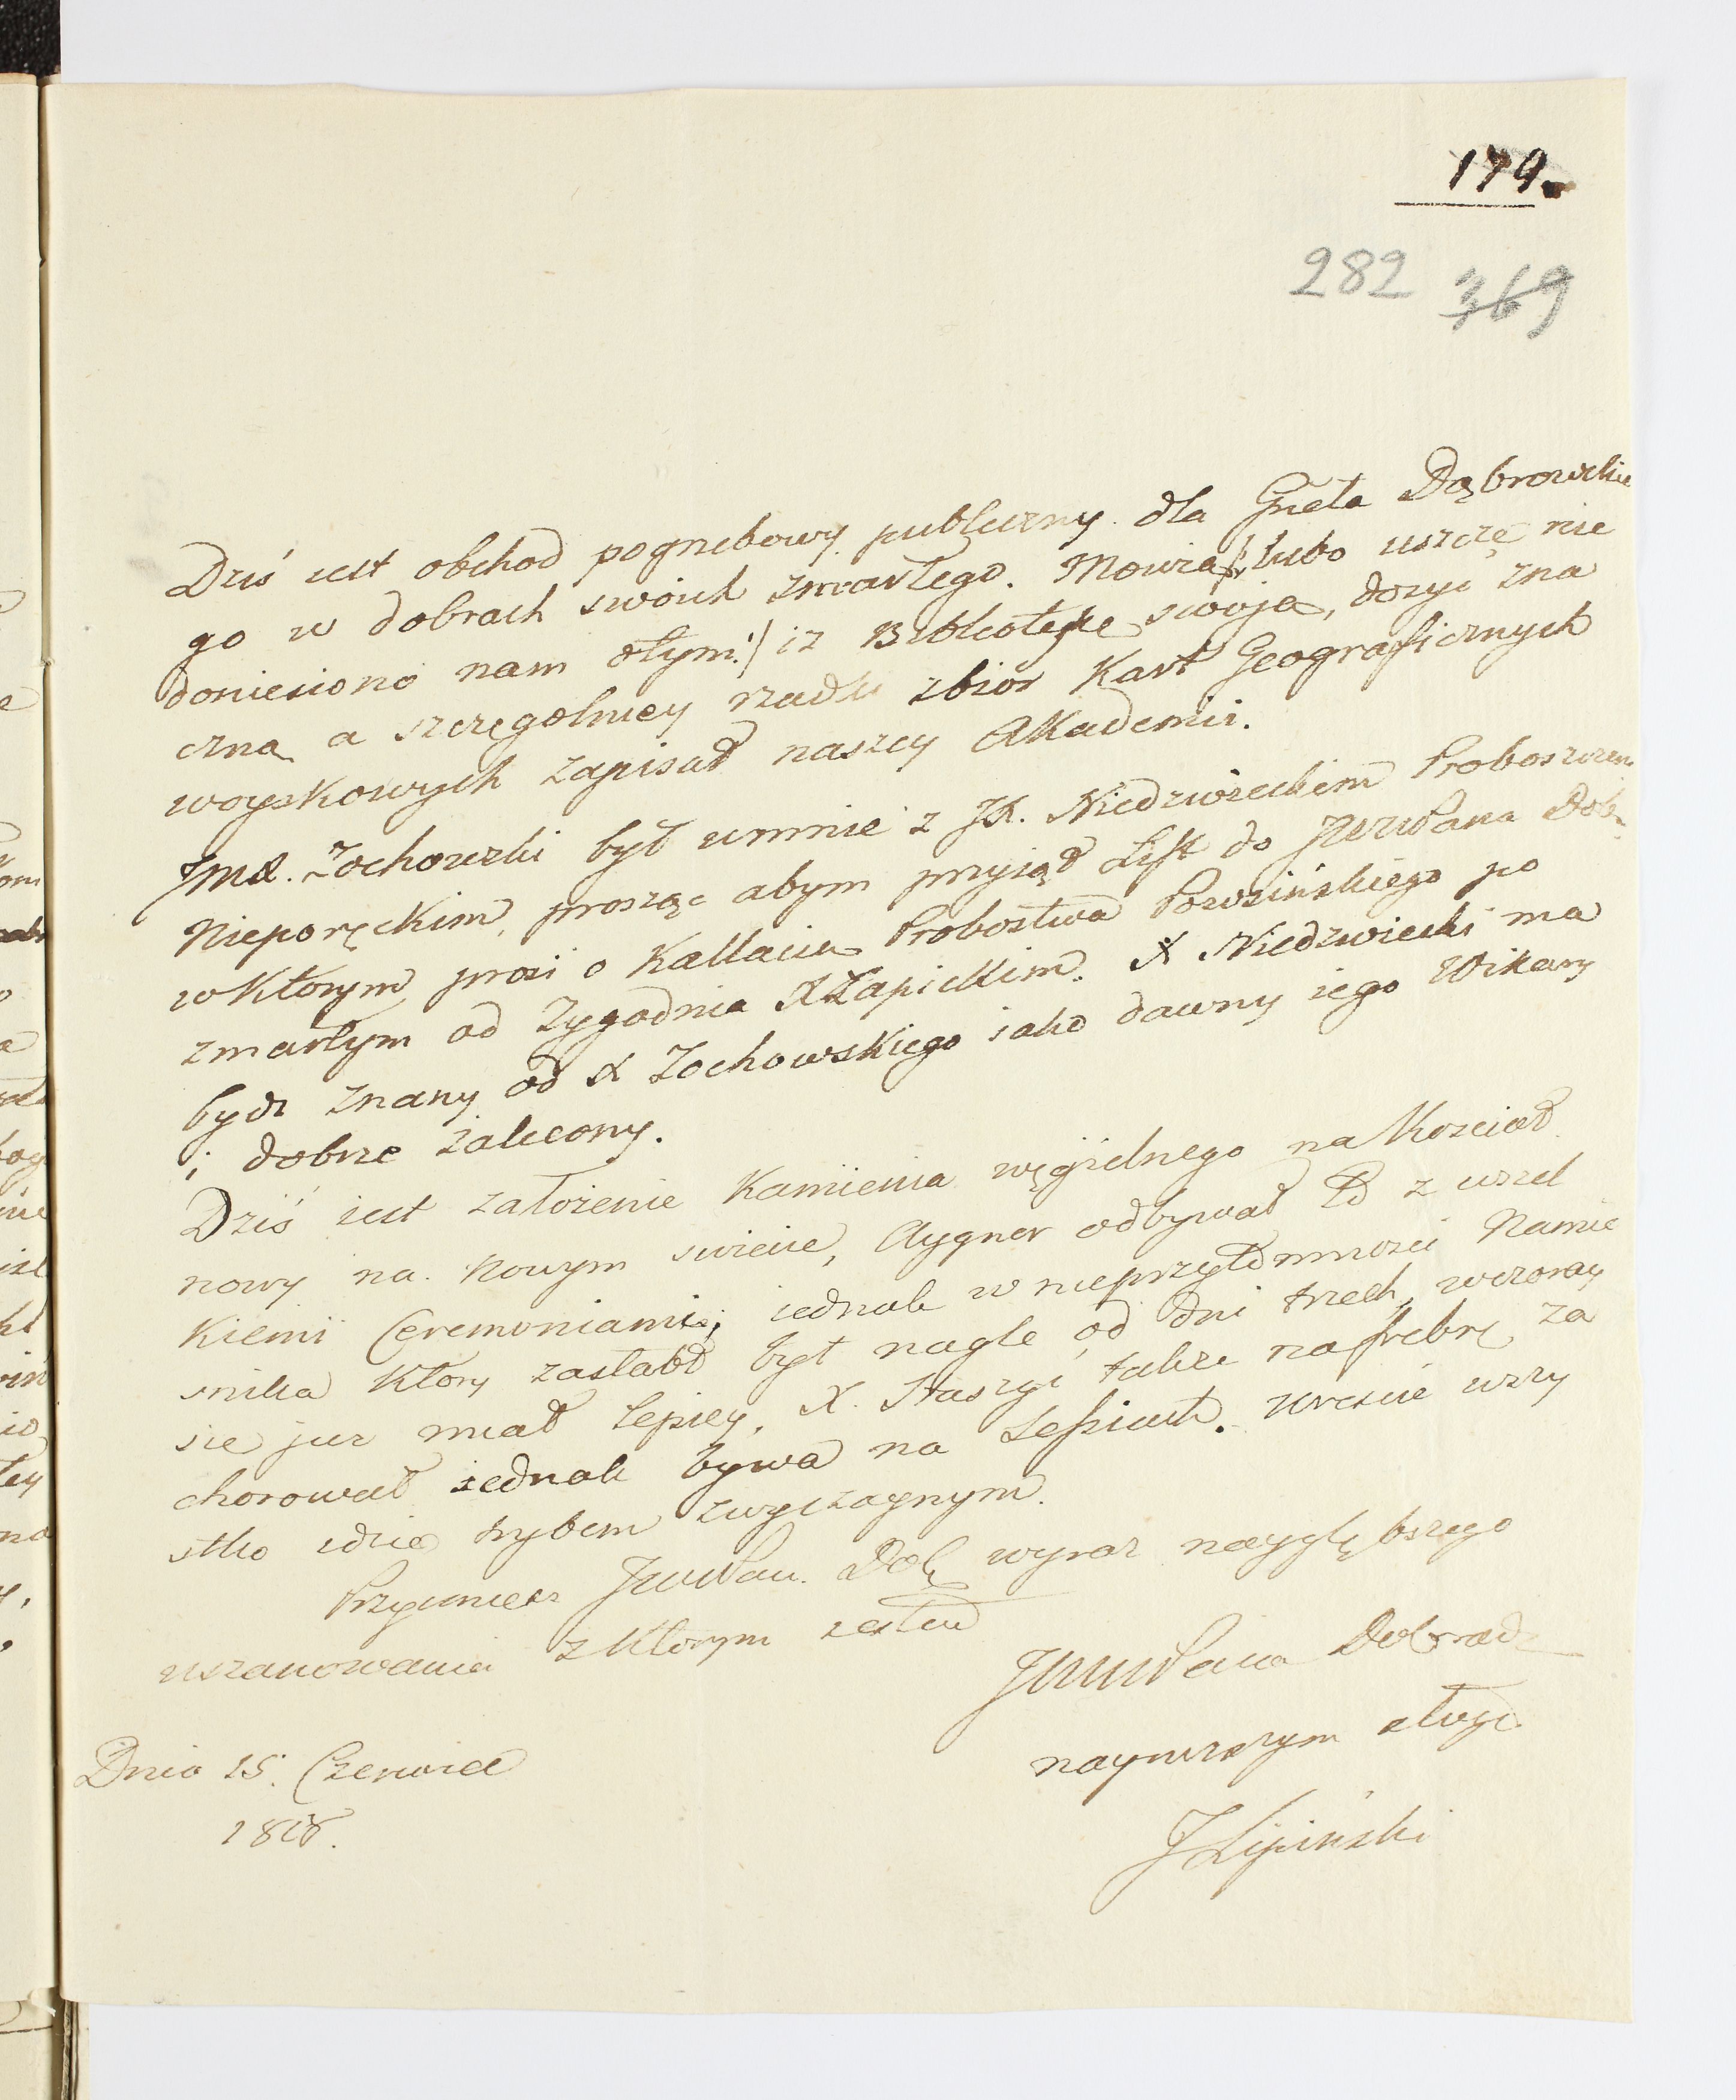 179.
282 369
Dziś iest obchod pogrzebowy publiczny dla Gnēła Dąbrowskie
go w dobrach swoich zmarłego. Mowią /: lubo ieszcze nie
doniesiono nam otym :/ iz Bibliotekę swoją, dosyć zna
czną a szczegolniey rzadki zbior Kart Geograficznych
woyskowych zapisał naszey Akademii.
JmX. Zochowski był umnie z JX. Niedzwieckim Proboszczem
Nieporęckim, prosząc abym przyiął List do JWWPana Dob.
w Ktorym prosi o Kollacią Probostwa Powsińskiego po
zmarłym od Tygodnia X Łapickim. X Niedzwiecki ma
bydz znany od X Zochowskiego iako dawny iego Wikary
i dobrze zalecony.
Dziś iest założenie Kamienia węgielnego na Kościoł
nowy na Nowym swiecie, Aygner odbywał to z wszel
kiemi Ceremoniami; iednak w nieprzytomnosci Namie
snika Ktory zasłabł był nagle od dni trzech, wczoray
sie juz miał lepiey. X. Staszyc takze na febrę za
chorował iednak bywa na Sessiach. Wrescie wszy
stko idzie trybem zwyczaynym.
Przyimiesz JWWPan Dob wyraz nayglębszego
uszanowania z Ktorym iestem
JWWPana Dobrodz
nayniższym sługą
JLipiński
Dnia 15. Czerwca
1818.